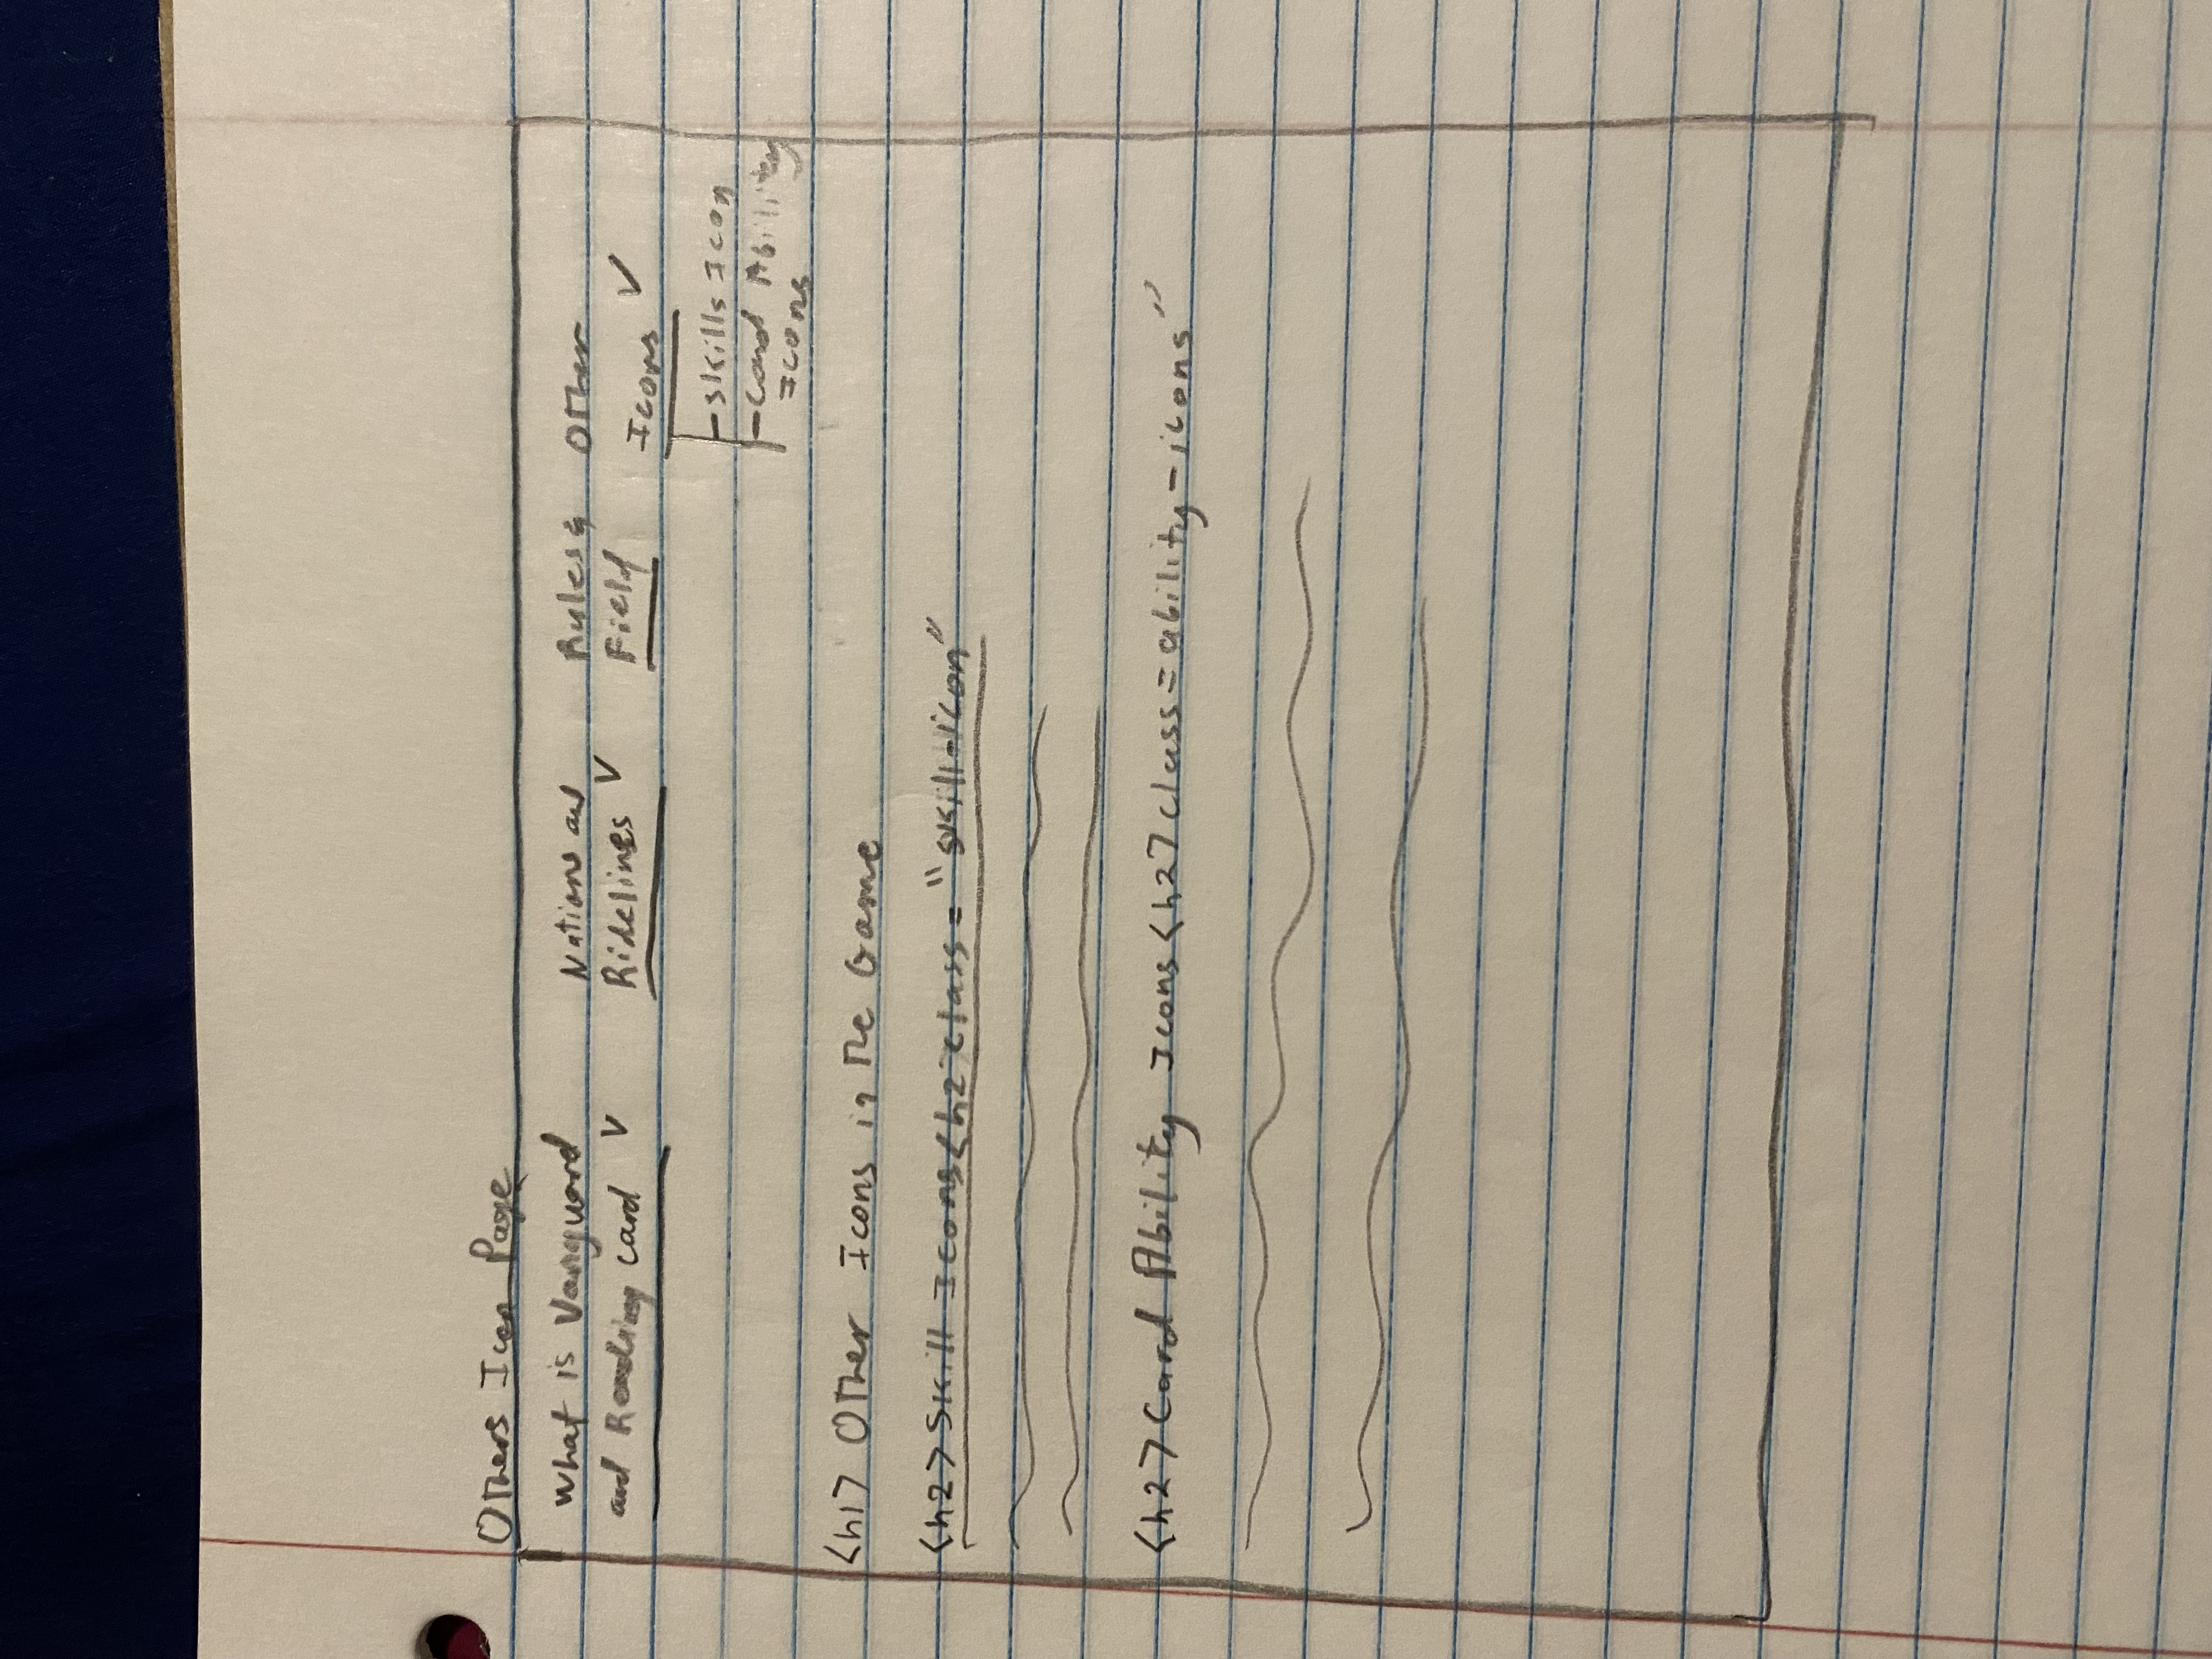 Others Icon Page
What is Vanguard
and Reading card V
Nations and
Ridelines V
Rules &
Field
Other
Icons V
- skills Icon
- Card Ability
Icons
<h1> Other Icons in the Game
<h2> Skill Icons <h2 class = "skill-icon"
<h2> Card Ability Icons <h2> class = ability-icons"